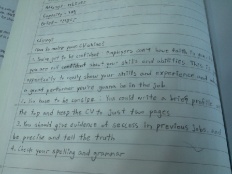 How to make your CV shine:
1. Have got to be confident. Employers can't have faith in you
you are not confident about your skills and abilities. This is
opportunity to really show your skills and experience and to
a great performer you're gonna be in the job
2. You have to be concise. You could write a brief profile
the top and keep the CV to Just two pages
3. You should give evidence of success in previous jobs. And
be precise and tell the truth
4. Check your spelling and grammar